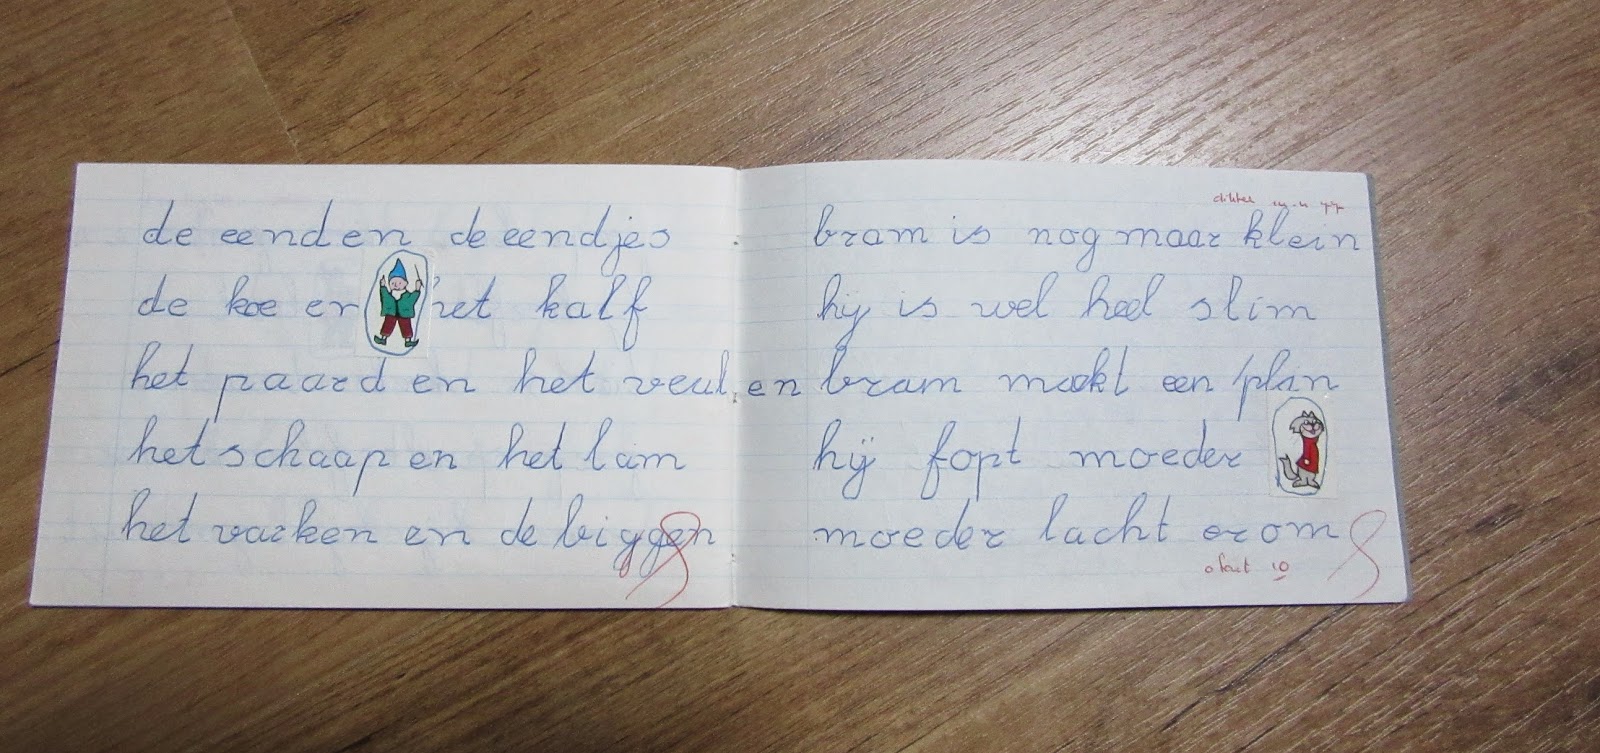 de eenden de eendjes
de koe en het kalf
het paard en het veulen
het schaap en het lam
het varken en de biggen
dictee 77
bram is nog maar klein
hij is wel heel slim
bram maakt een plan
hij fopt moeder
moeder lacht erom
0 fout 10